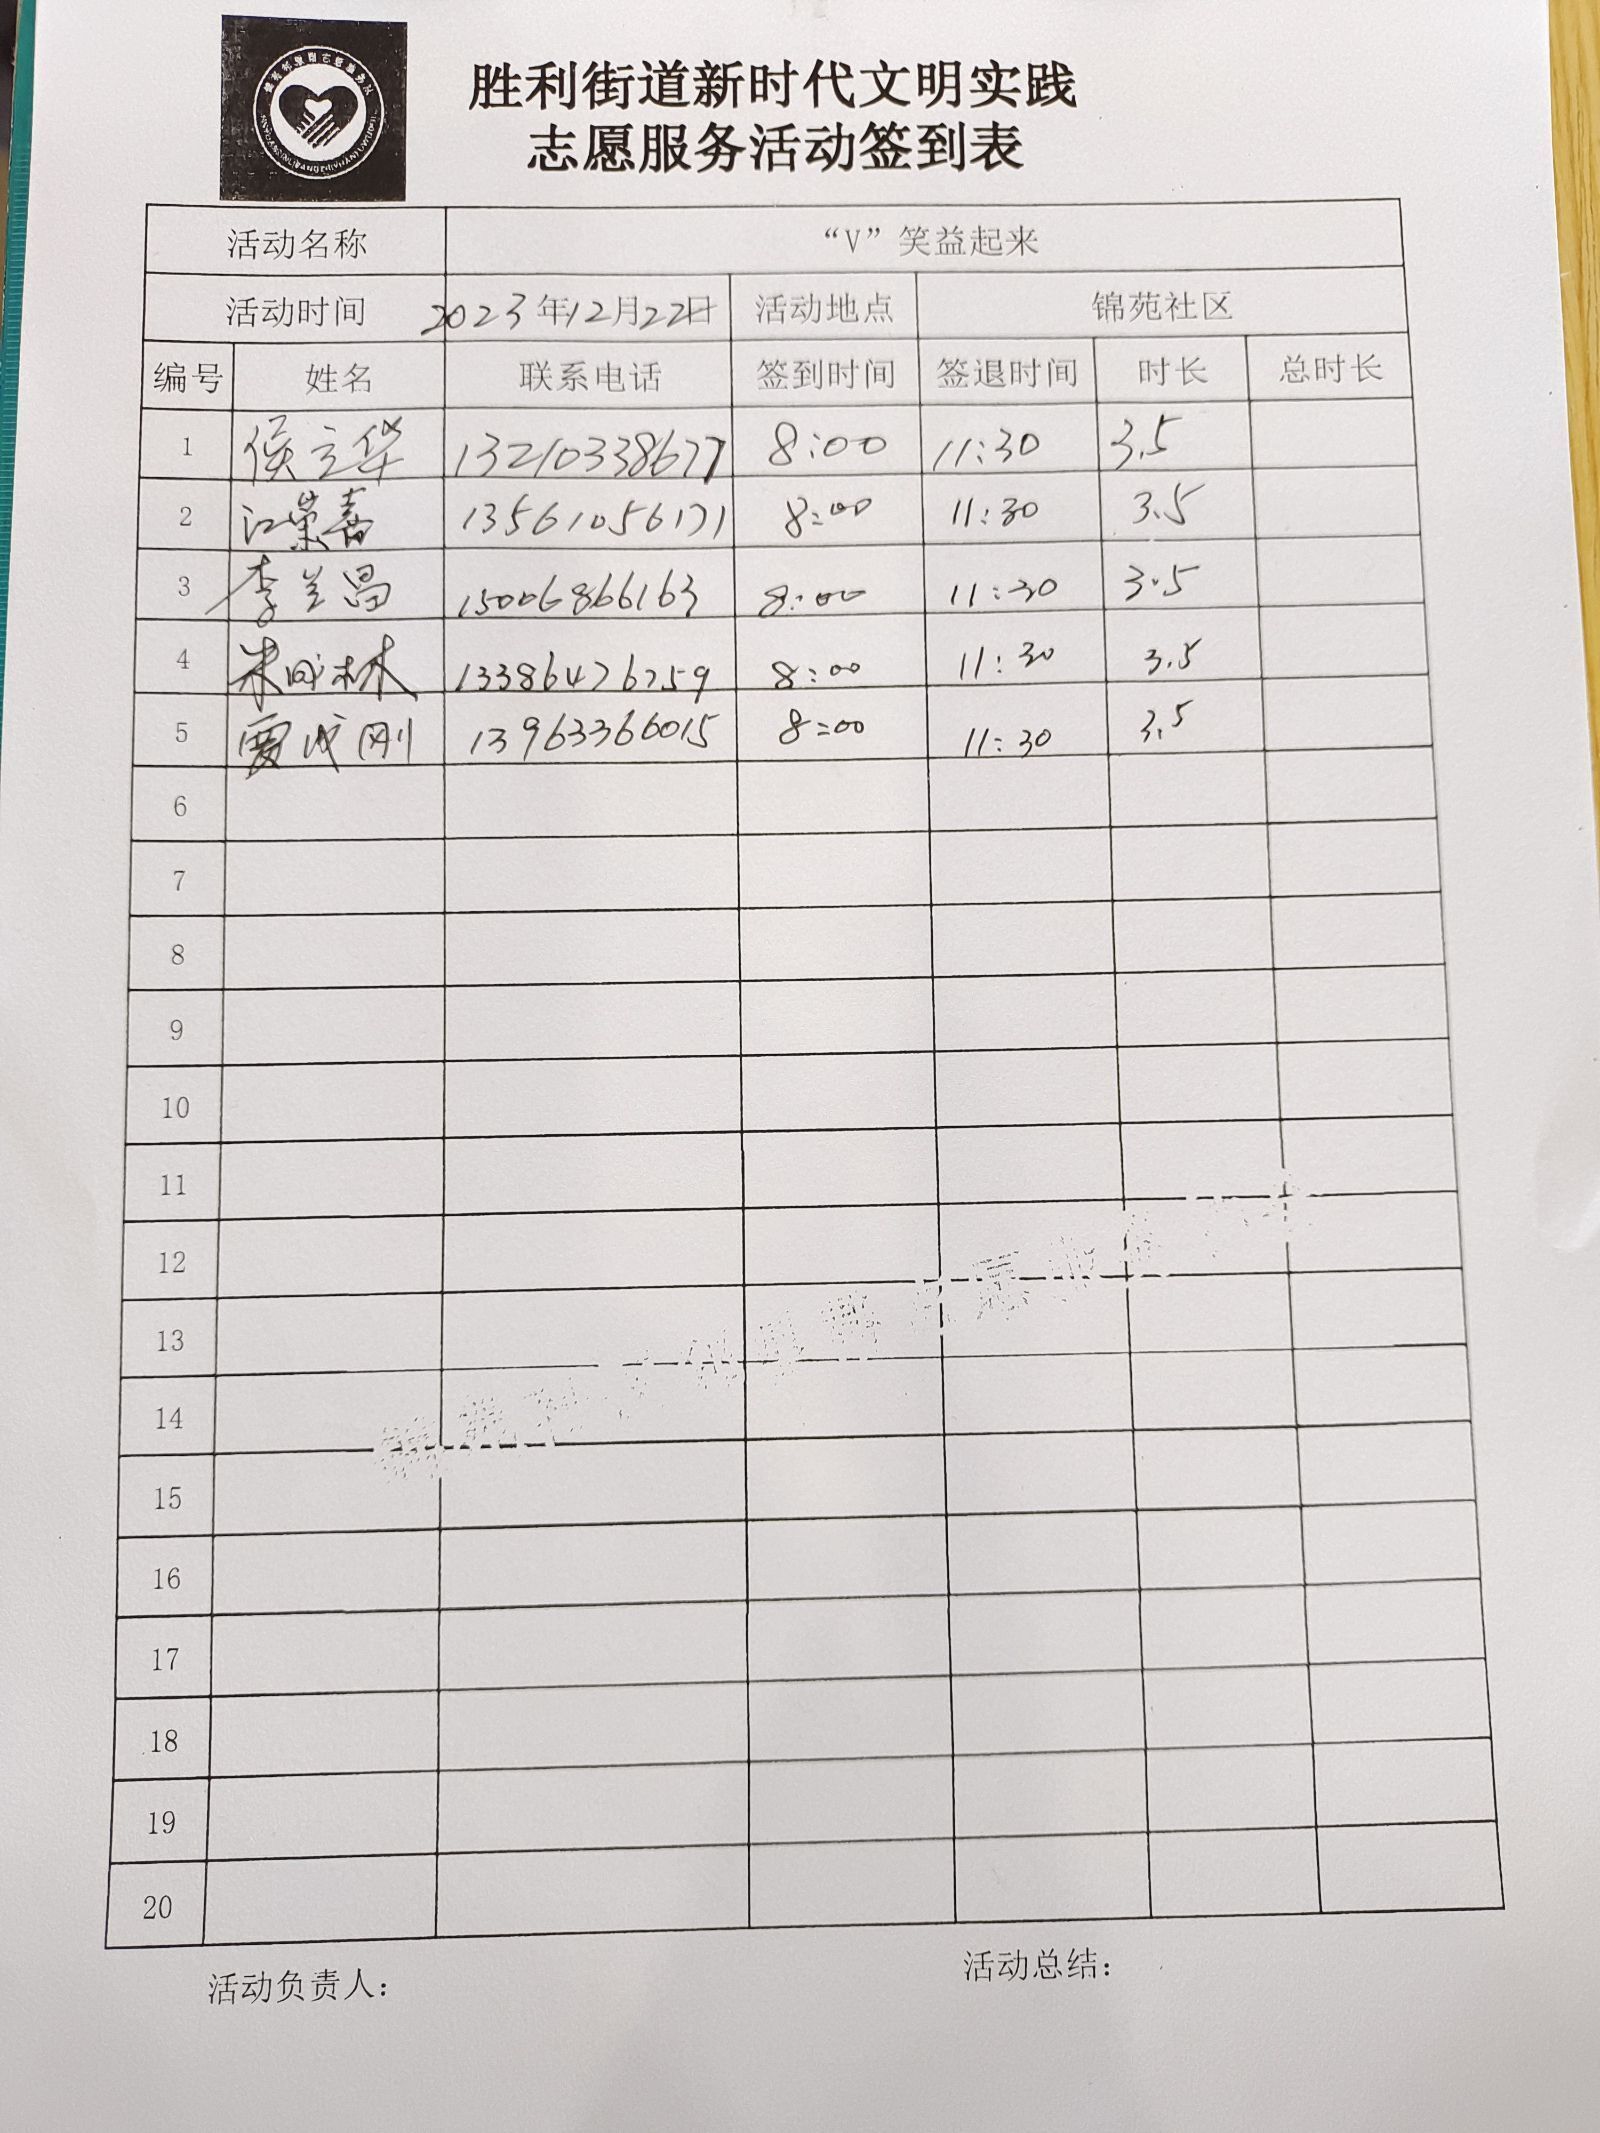 胜利街道新时代文明实践
志愿服务活动签到表
活动名称 “V”笑益起来
活动时间 2023年12月22日 活动地点 锦苑社区
编号 姓名 联系电话 签到时间 签退时间 时长 总时长
1 侯立华 13210338677 8:00 11:30 3.5
2 江崇嘉 13561056171 8:00 11:30 3.5
3 李兰昌 15006866163 8:00 11:30 3.5
4 朱成林 13386476259 8:00 11:30 3.5
5 贾成刚 13963366015 8:00 11:30 3.5
6
7
8
9
10
11
12
13
14
15
16
17
18
19
20
活动负责人： 活动总结：